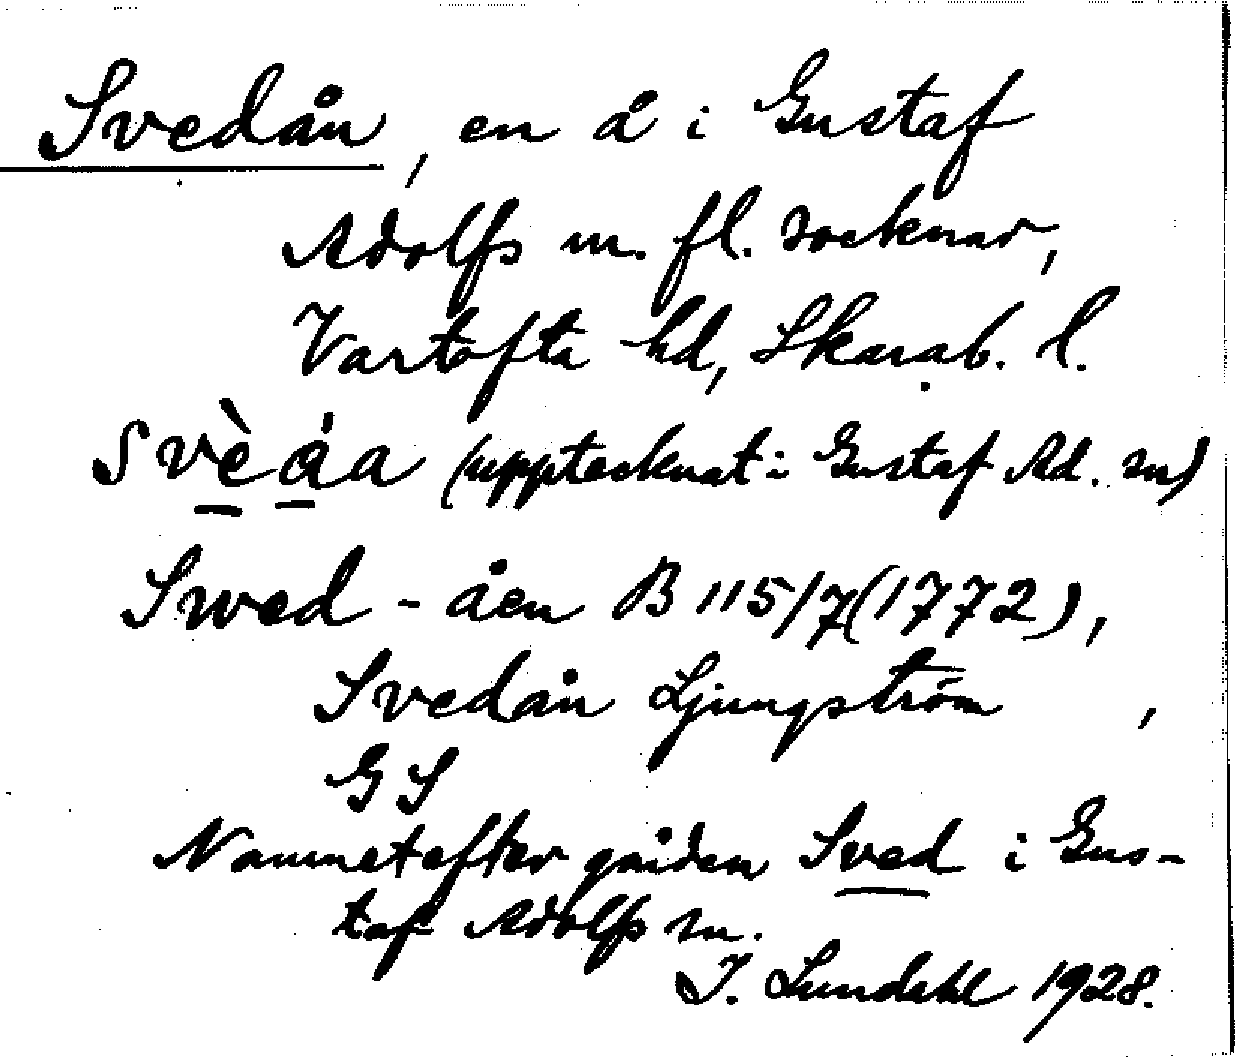 Svedån, en å i Gustaf
Adolfs m. fl. socknar,
Vartofta hd, Skarab. l.
Svèȧa (upptecknat i Gustaf Ad. sn)
Swed-åen B 115/7 (1772),
Svedån Ljungström ,
GS
Namnet efter gården Sved i Gus-
taf Adolfs sn.
I. Lundahl 1928.